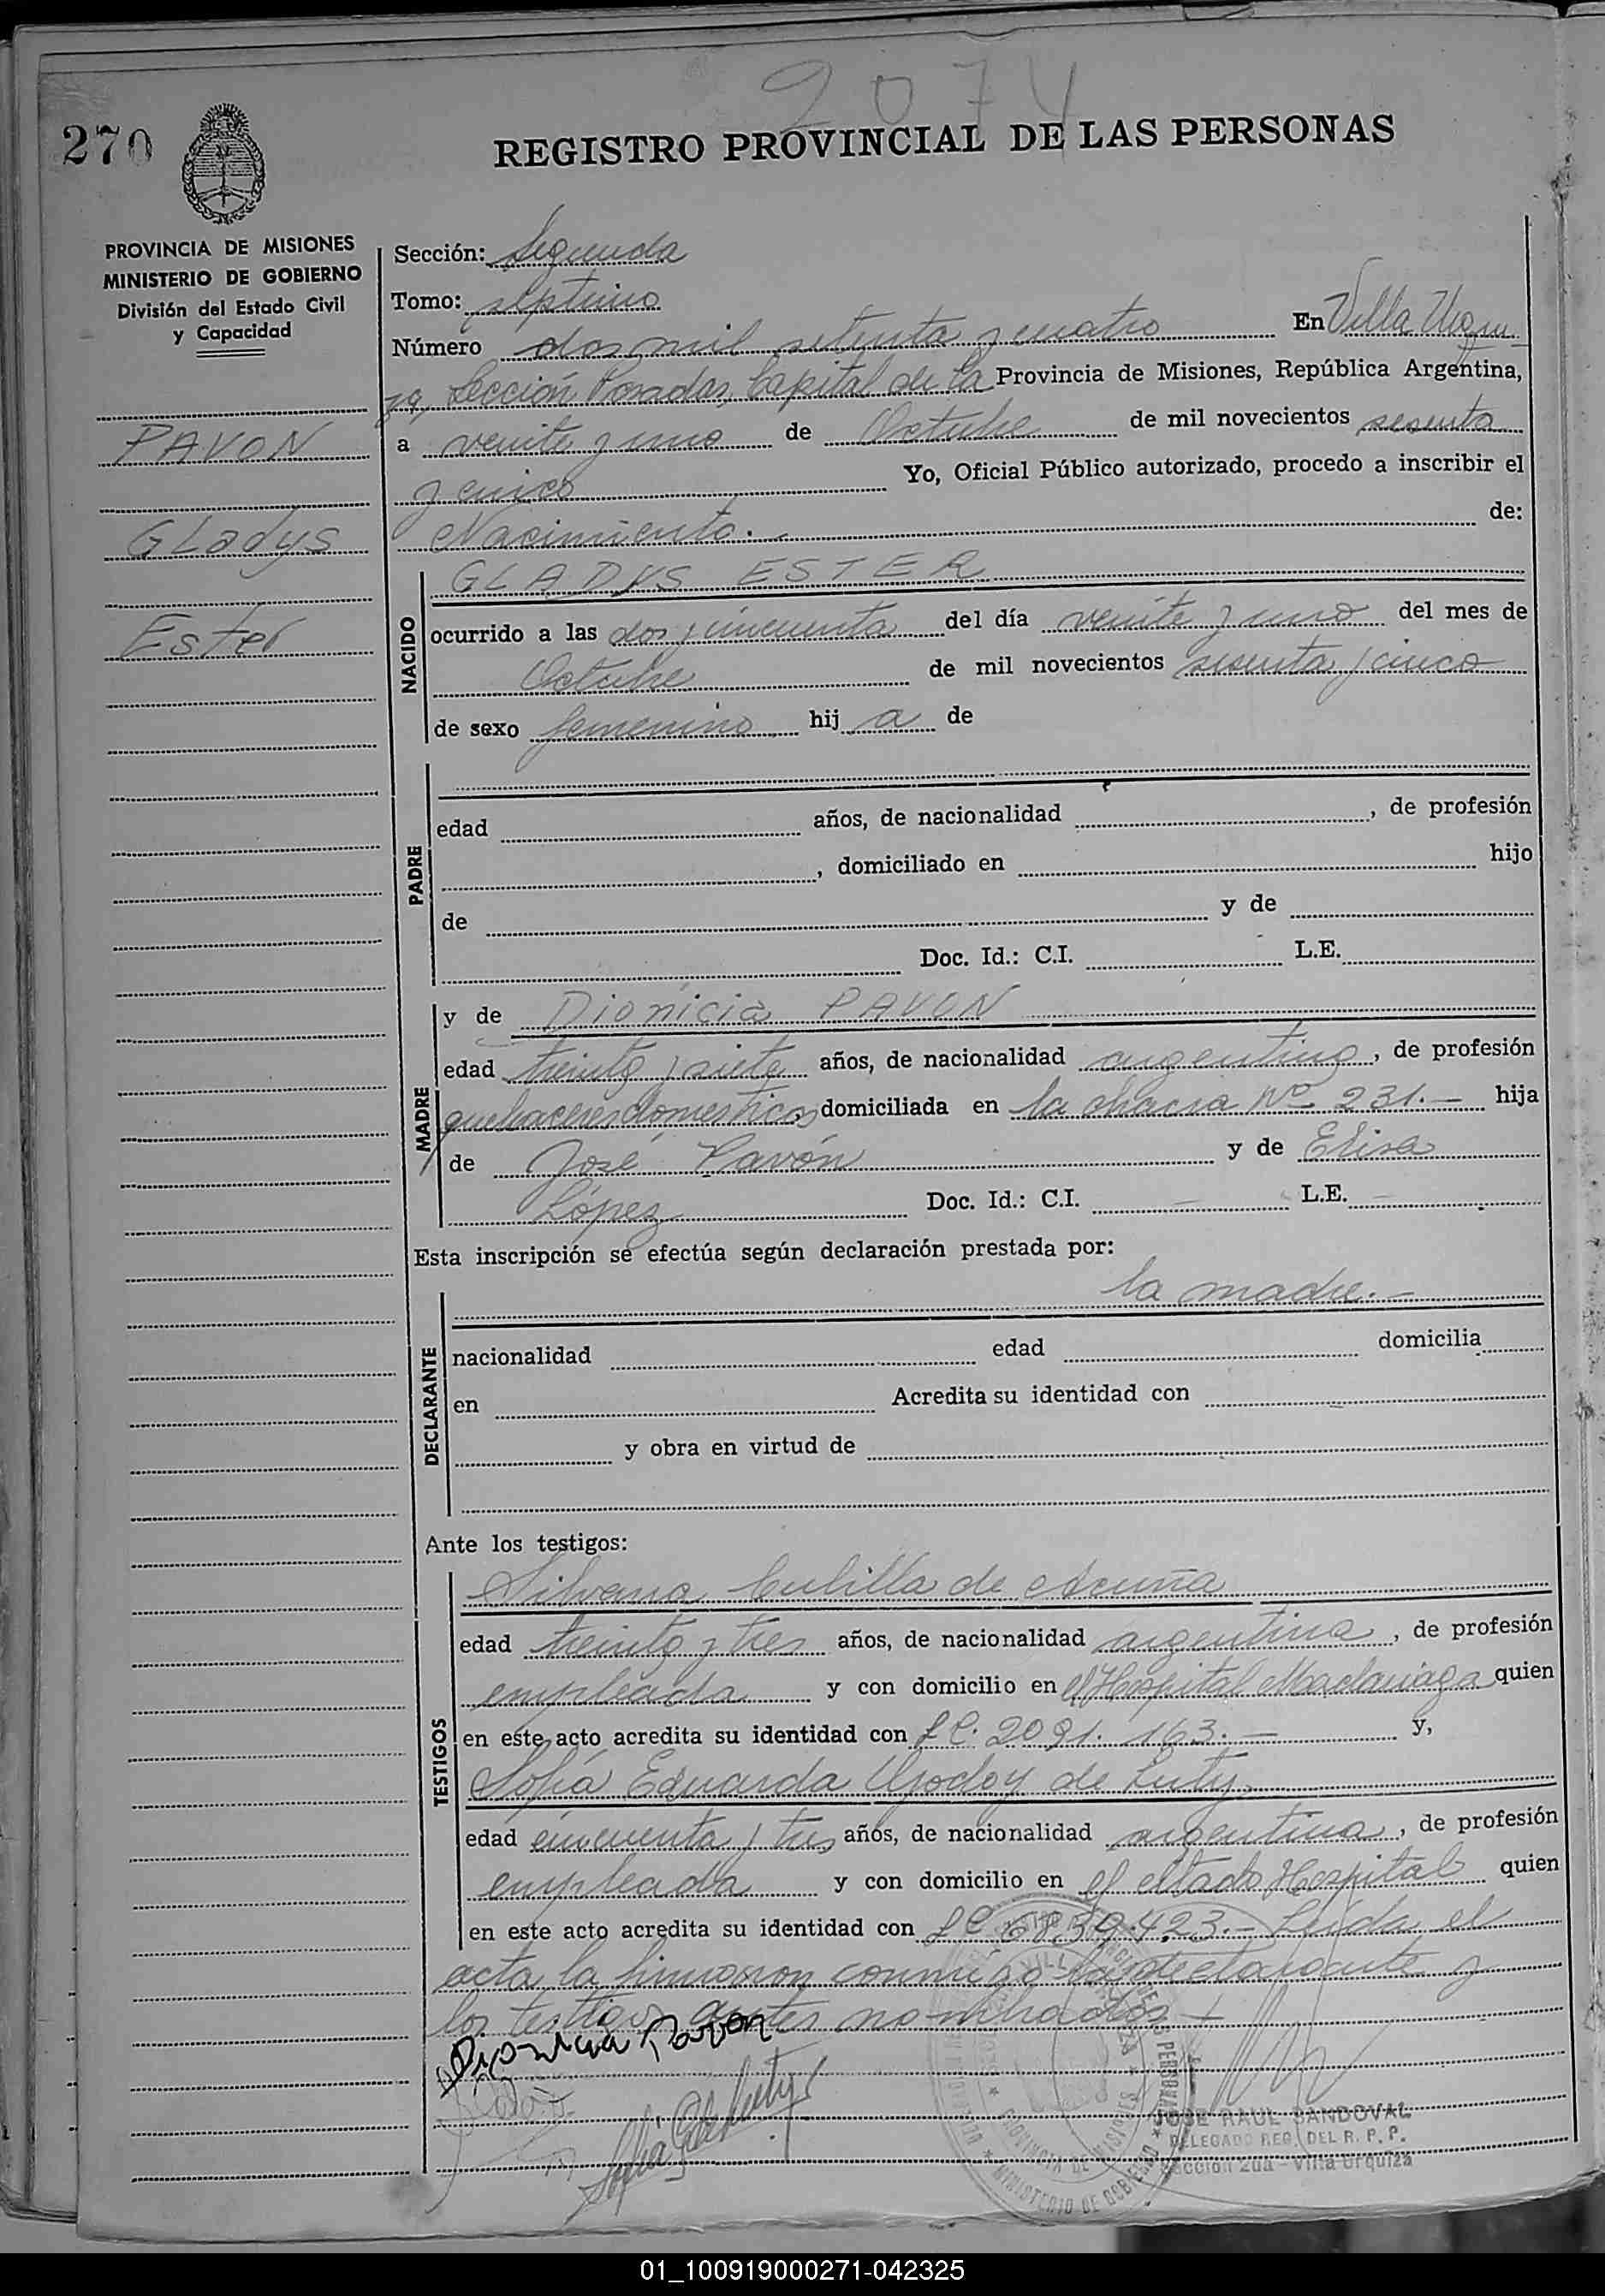 2074
270
REGISTRO PROVINCIAL DE LAS PERSONAS
PROVINCIA DE MISIONES
MINISTERIO DE GOBIERNO
División del Estado Civil
y Capacidad
PAVON
Gladys
Ester
Sección: Segunda
Tomo: septimo
Número dos mil setenta y cuatro En Villa Urqui
za, Sección Posadas, Capital de la Provincia de Misiones, República Argentina,
a veinte y uno de Octubre de mil novecientos sesenta
y cinco Yo, Oficial Público autorizado, procedo a inscribir el
Nacimiento.- de:
NACIDO
GLADYS ESTER
ocurrido a las dos y cincuenta del día veinte y uno del mes de
Octubre de mil novecientos sesenta y cinco
de sexo femenino hij a de
PADRE
edad años, de nacionalidad , de profesión
, domiciliado en hijo
de y de
Doc. Id.: C.I. L.E.
MADRE
y de Dionicia PAVON
edad treinta y siete años, de nacionalidad argentina, de profesión
quehaceres domesticos domiciliada en la chacra Nº 231.- hija
de José Pavón y de Elisa
López Doc. Id.: C.I. - L.E. -
Esta inscripción se efectúa según declaración prestada por:
la madre.-
DECLARANTE
nacionalidad edad domicilia
en Acredita su identidad con
y obra en virtud de
Ante los testigos:
TESTIGOS
Silvana Cubilla de Acuña
edad treinta y tres años, de nacionalidad argentina, de profesión
empleada y con domicilio en el Hospital Madariaga quien
en este acto acredita su identidad con LC. 2091.163.- y,
Sofía Eduarda Godoy de Luty
edad cincuenta y tres años, de nacionalidad argentina, de profesión
empleada y con domicilio en el citado Hospital quien
en este acto acredita su identidad con LC 6839.423.- Leída el
acta la firmaron conmigo la declarante y
los testigos antes nombrados.-
Dionicia Pavon
Sofia G de Luty
JOSE RAUL SANDOVAL
DELEGADO REG. DEL R. P. P.
Sección 2da - Villa Urquiza
PROVINCIA DE MISIONES
MINISTERIO DE GOBIERNO
01_100919000271-042325